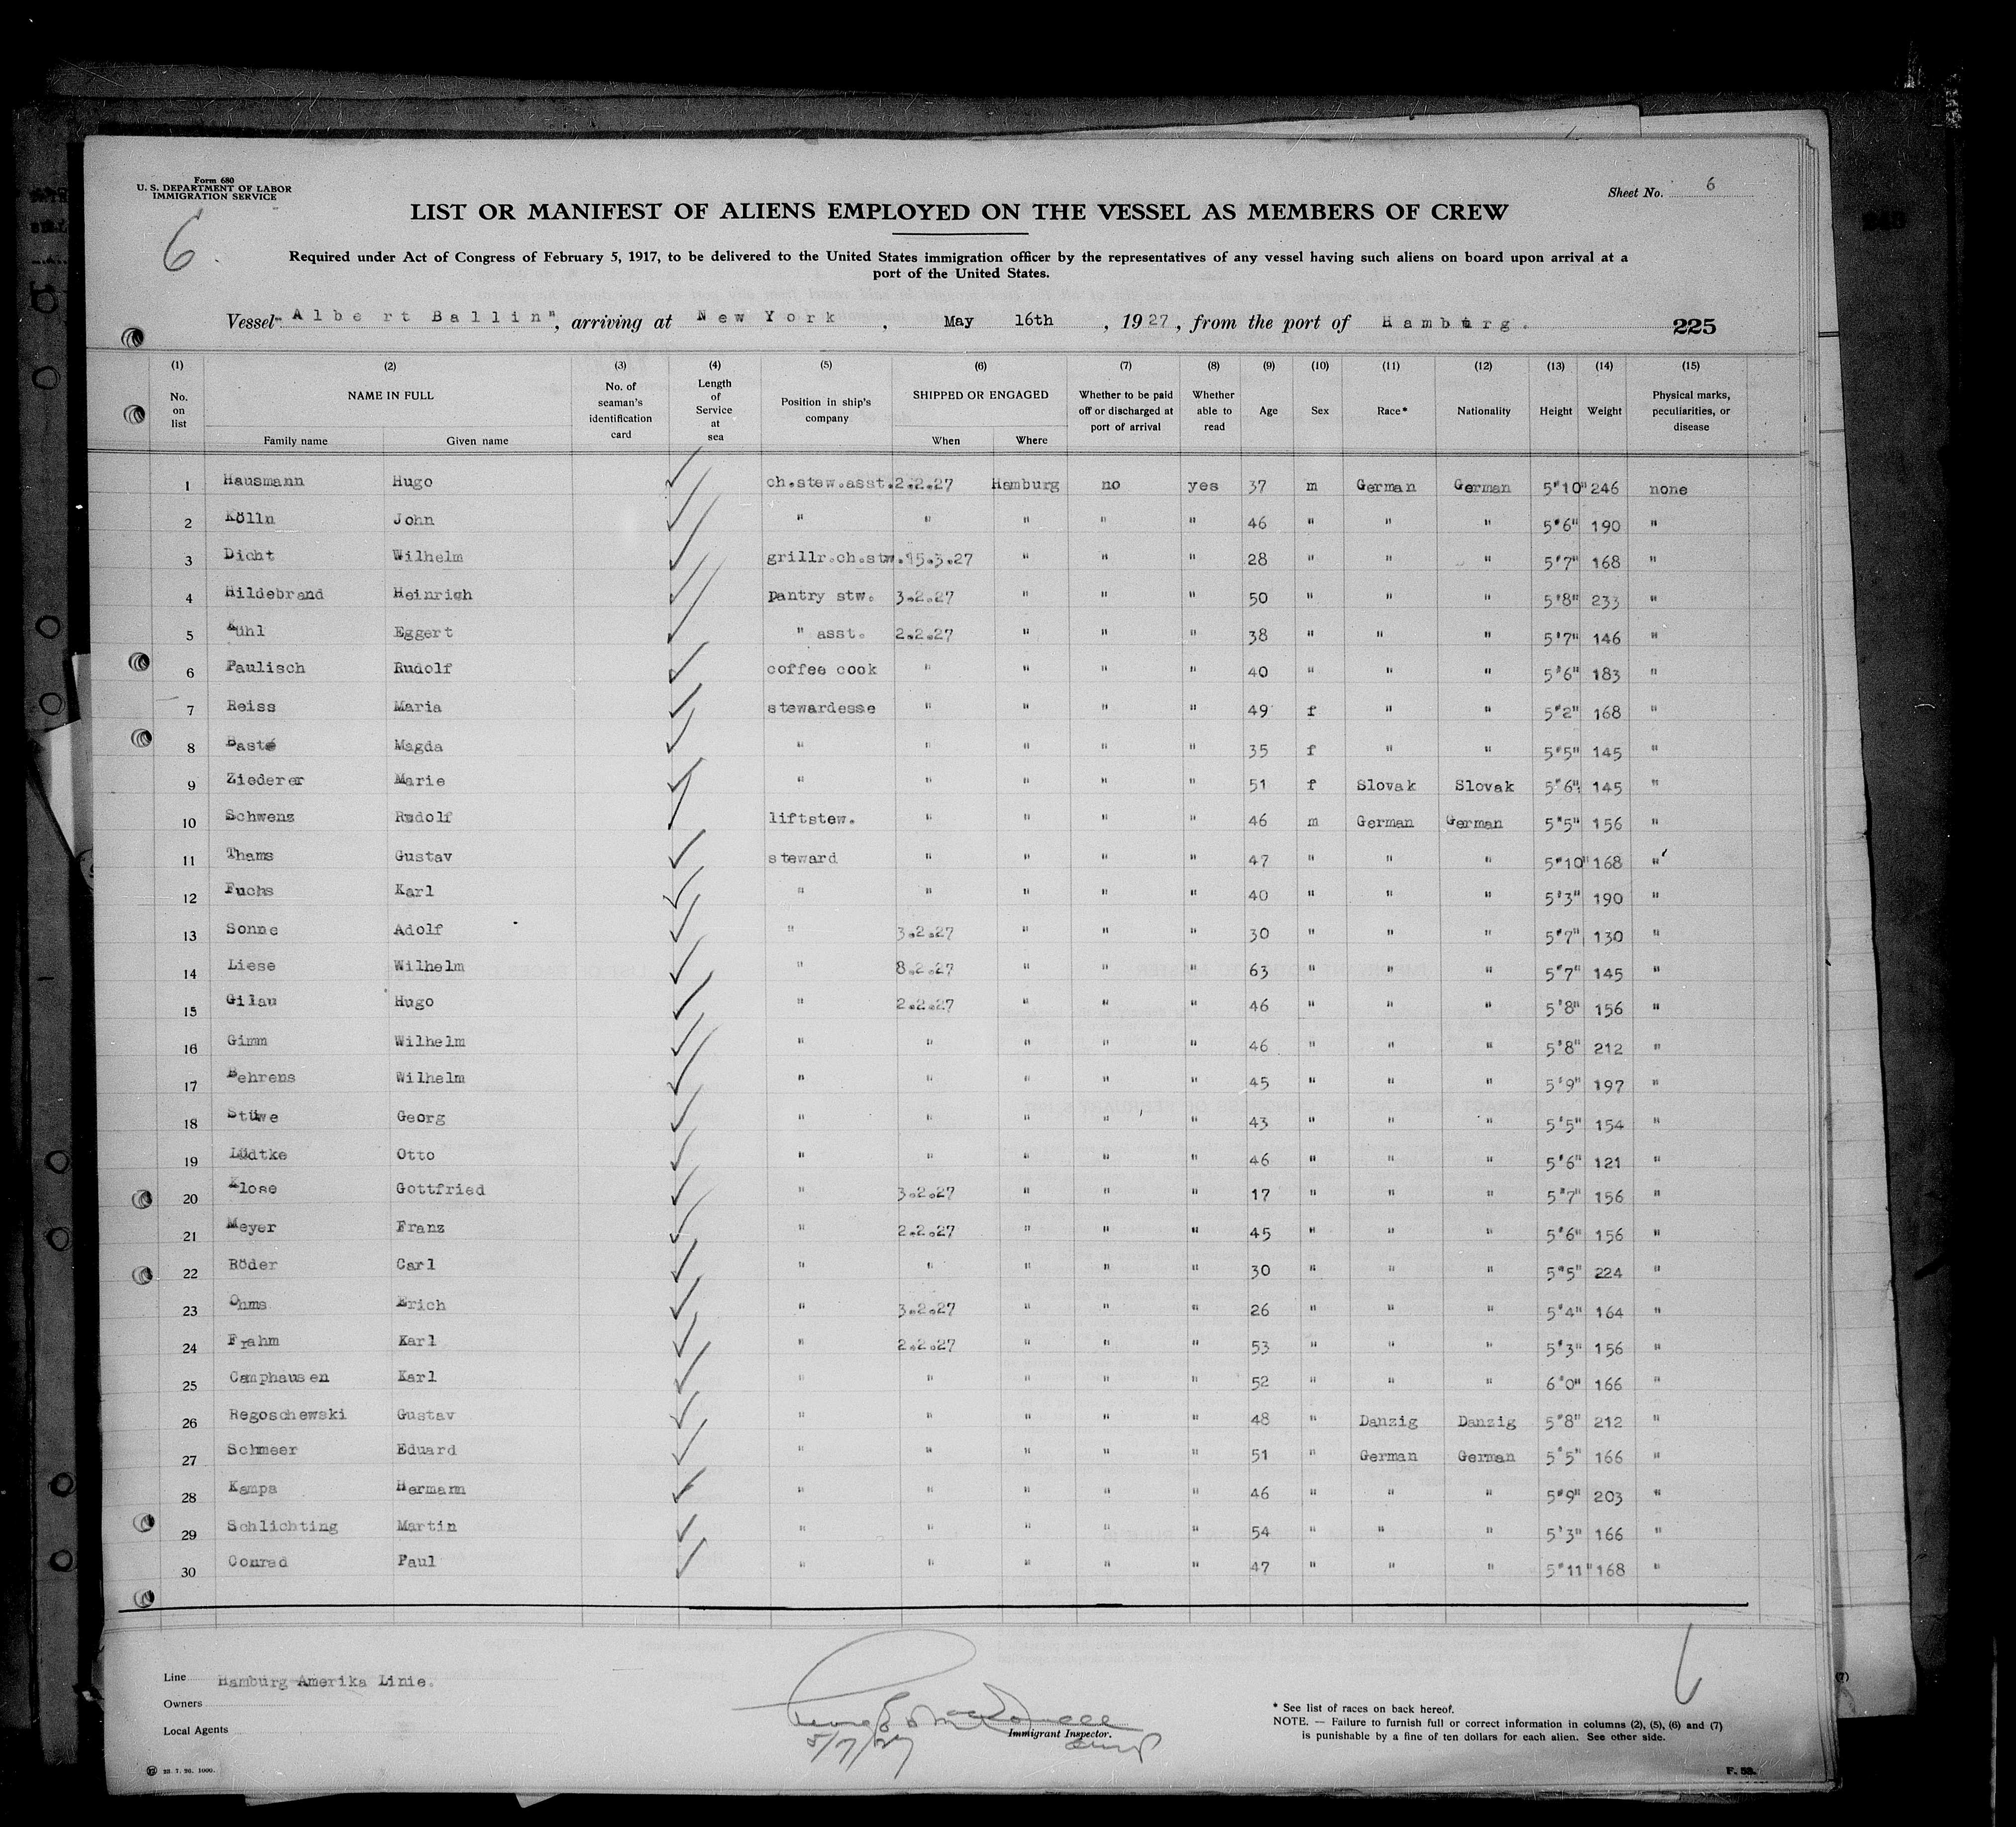 Form 680
U. S. DEPARTMENT OF LABOR
IMMIGRATION SERVICE
Sheet No. 6
6
LIST OR MANIFEST OF ALIENS EMPLOYED ON THE VESSEL AS MEMBERS OF CREW
Required under Act of Congress of February 5, 1917, to be delivered to the United States immigration officer by the representatives of any vessel having such aliens on board upon arrival at a
port of the United States.
Vessel "Albert Ballin", arriving at New York, May 16th, 1927, from the port of Hamburg. 225
(1) (2) (3) (4) (5) (6) (7) (8) (9) (10) (11) (12) (13) (14) (15)
No. on list NAME IN FULL Family name Given name No. of seaman's identification card Length of Service at sea Position in ship's company SHIPPED OR ENGAGED When Where Whether to be paid off or discharged at port of arrival Whether able to read Age Sex Race* Nationality Height Weight Physical marks, peculiarities, or disease
1 Hausmann Hugo ch.stew.asst. 2.2.27 Hamburg no yes 37 m German German 5'10" 246 none
2 Kölln John " " " " " 46 " " " 5'6" 190 "
3 Dicht Wilhelm grillr.ch.stw. 15.3.27 " " " 28 " " " 5'7" 168 "
4 Hildebrand Heinrich pantry stw. 3.2.27 " " " 50 " " " 5'8" 233 "
5 Kühl Eggert " asst. 2.2.27 " " " 38 " " " 5'7" 146 "
6 Paulisch Rudolf coffee cook " " " " 40 " " " 5'6" 183 "
7 Reiss Maria stewardesse " " " " 49 f " " 5'2" 168 "
8 Basté Magda " " " " " 35 f " " 5'5" 145 "
9 Ziederer Marie " " " " " 51 f Slovak Slovak 5'6" 145 "
10 Schwenz Rudolf liftstew. " " " " 46 m German German 5'5" 156 "
11 Thams Gustav steward " " " " 47 " " " 5'10" 168 "
12 Fuchs Karl " " " " " 40 " " " 5'3" 190 "
13 Sonne Adolf " 3.2.27 " " " 30 " " " 5'7" 130 "
14 Liese Wilhelm " 8.2.27 " " " 63 " " " 5'7" 145 "
15 Gilau Hugo " 2.2.27 " " " 46 " " " 5'8" 156 "
16 Gimm Wilhelm " " " " " 46 " " " 5'8" 212 "
17 Behrens Wilhelm " " " " " 45 " " " 5'9" 197 "
18 Stüwe Georg " " " " " 43 " " " 5'5" 154 "
19 Lüdtke Otto " " " " " 46 " " " 5'6" 121 "
20 Klose Gottfried " 3.2.27 " " " 17 " " " 5'7" 156 "
21 Meyer Franz " 2.2.27 " " " 45 " " " 5'6" 156 "
22 Röder Carl " " " " " 30 " " " 5'5" 224 "
23 Ohms Erich " 3.2.27 " " " 26 " " " 5'4" 164 "
24 Frahm Karl " 2.2.27 " " " 53 " " " 5'3" 156 "
25 Camphausen Karl " " " " " 52 " " " 6'0" 166 "
26 Regoschewski Gustav " " " " " 48 " Danzig Danzig 5'8" 212 "
27 Schmeer Eduard " " " " " 51 " German German 5'5" 166 "
28 Kampa Hermann " " " " " 46 " " " 5'9" 203 "
29 Schlichting Martin " " " " " 54 " " " 5'3" 166 "
30 Conrad Paul " " " " " 47 " " " 5'11" 168 "
Line Hamburg-Amerika Linie.
Owners
Local Agents
Immigrant Inspector.
5/7/27
* See list of races on back hereof.
NOTE. — Failure to furnish full or correct information in columns (2), (5), (6) and (7)
is punishable by a fine of ten dollars for each alien. See other side.
6
28. 7. 26. 1000.
F. 52.